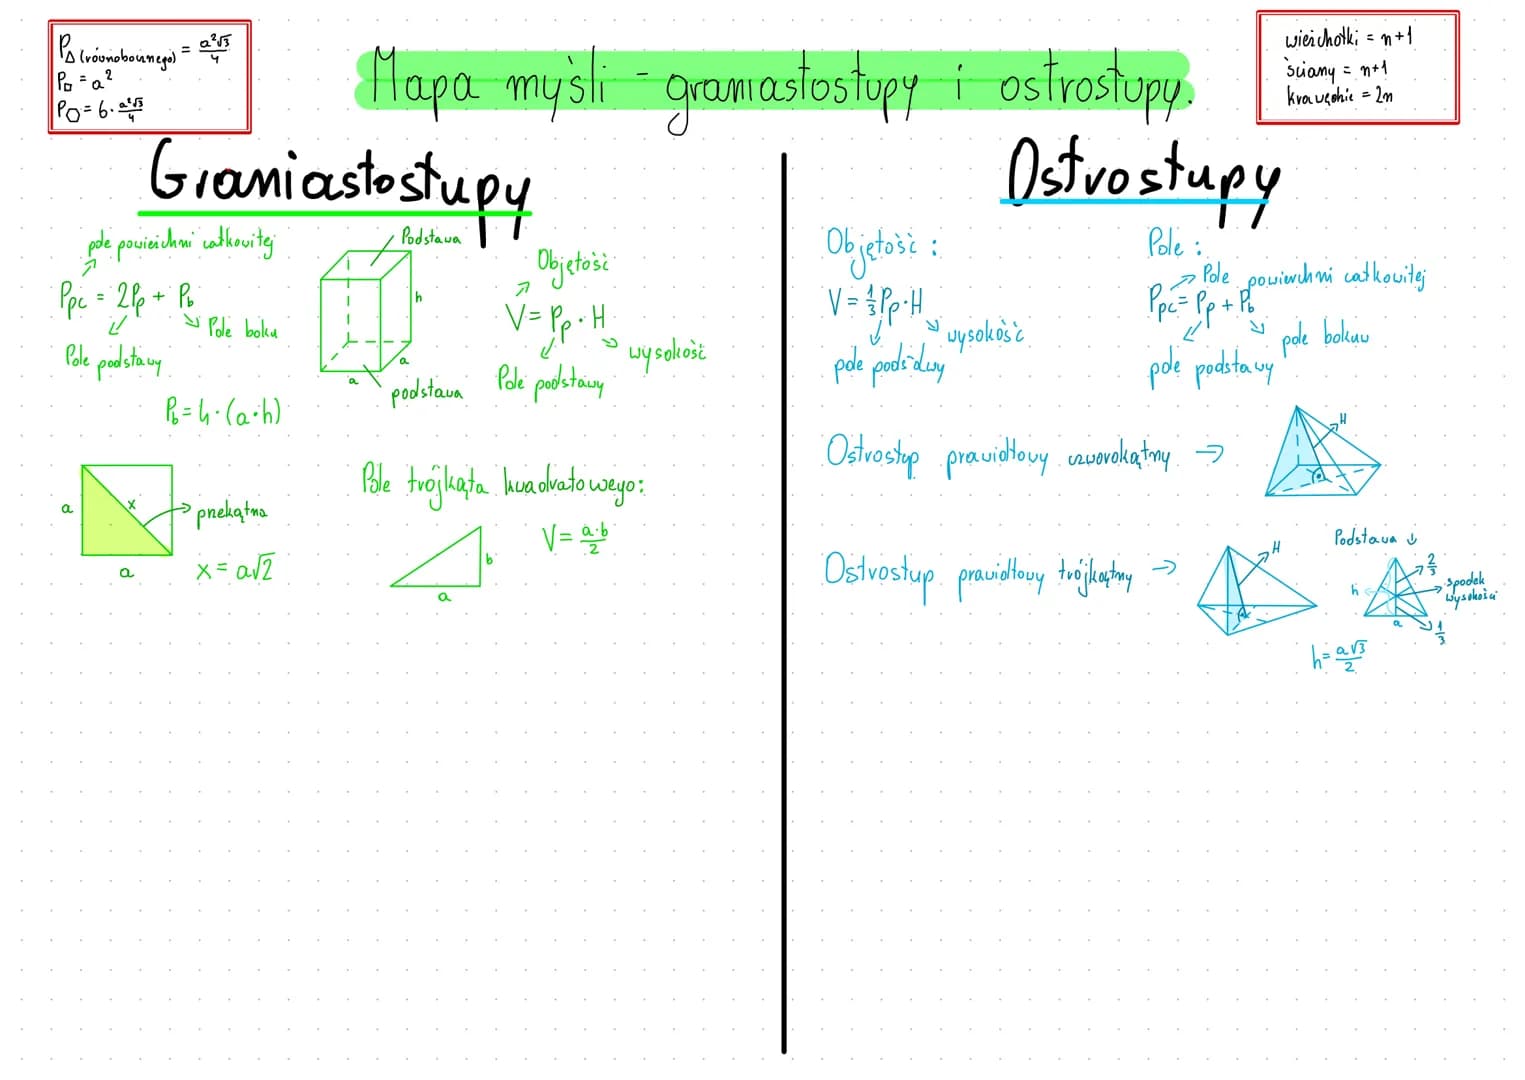 P△ (równobocznego) = a²√3/4
P□ = a²
P⬡ = 6 · a²√3/4
Mapa myśli - graniastosłupy i ostrosłupy.
wierzchołki = n+1
ściany = n+1
krawędzie = 2n
Graniastosłupy
pole powierzchni całkowitej
Ppc = 2Pp + Pb
Pole boku
Pole podstawy
Pb = 4 · (a · h)
Podstawa
h
a
a
podstawa
Objętość
V = Pp · H
wysokość
Pole podstawy
a
x
przekątna
a
x = a√2
Pole trójkąta kwadratowego:
V = a·b/2
b
a
Ostrosłupy
Objętość :
V = 1/3 Pp · H
wysokość
pole podstawy
Pole :
Pole powierzchni całkowitej
Ppc = Pp + Pb
pole boków
pole podstawy
Ostrosłup prawidłowy czworokątny →
H
Ostrosłup prawidłowy trójkątny →
H
Podstawa ↓
2/3
spodek
wysokości
h
a
1/3
h = a√3/2